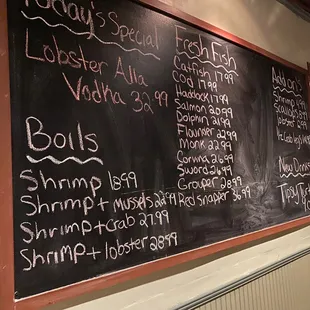 Today's Special
Lobster Alla
Vodka 32.99
Boils
Shrimp 18.99
Shrimp + Mussels 22.99
Shrimp + Crab 27.99
Shrimp + lobster 28.99
Fresh Fish
Catfish 17.99
Cod 17.99
Haddock 17.99
Salmon 20.99
Dolphin 21.99
Flounder 22.99
Monk 22.99
Corvina 26.99
Sword 26.99
Grouper 28.99
Red snapper 36.99
Add on's
Shrimp
New Drinks
Tipsy